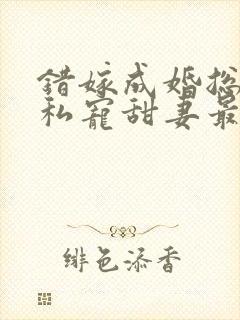 错嫁成婚总
私宠甜妻最
绯色添香